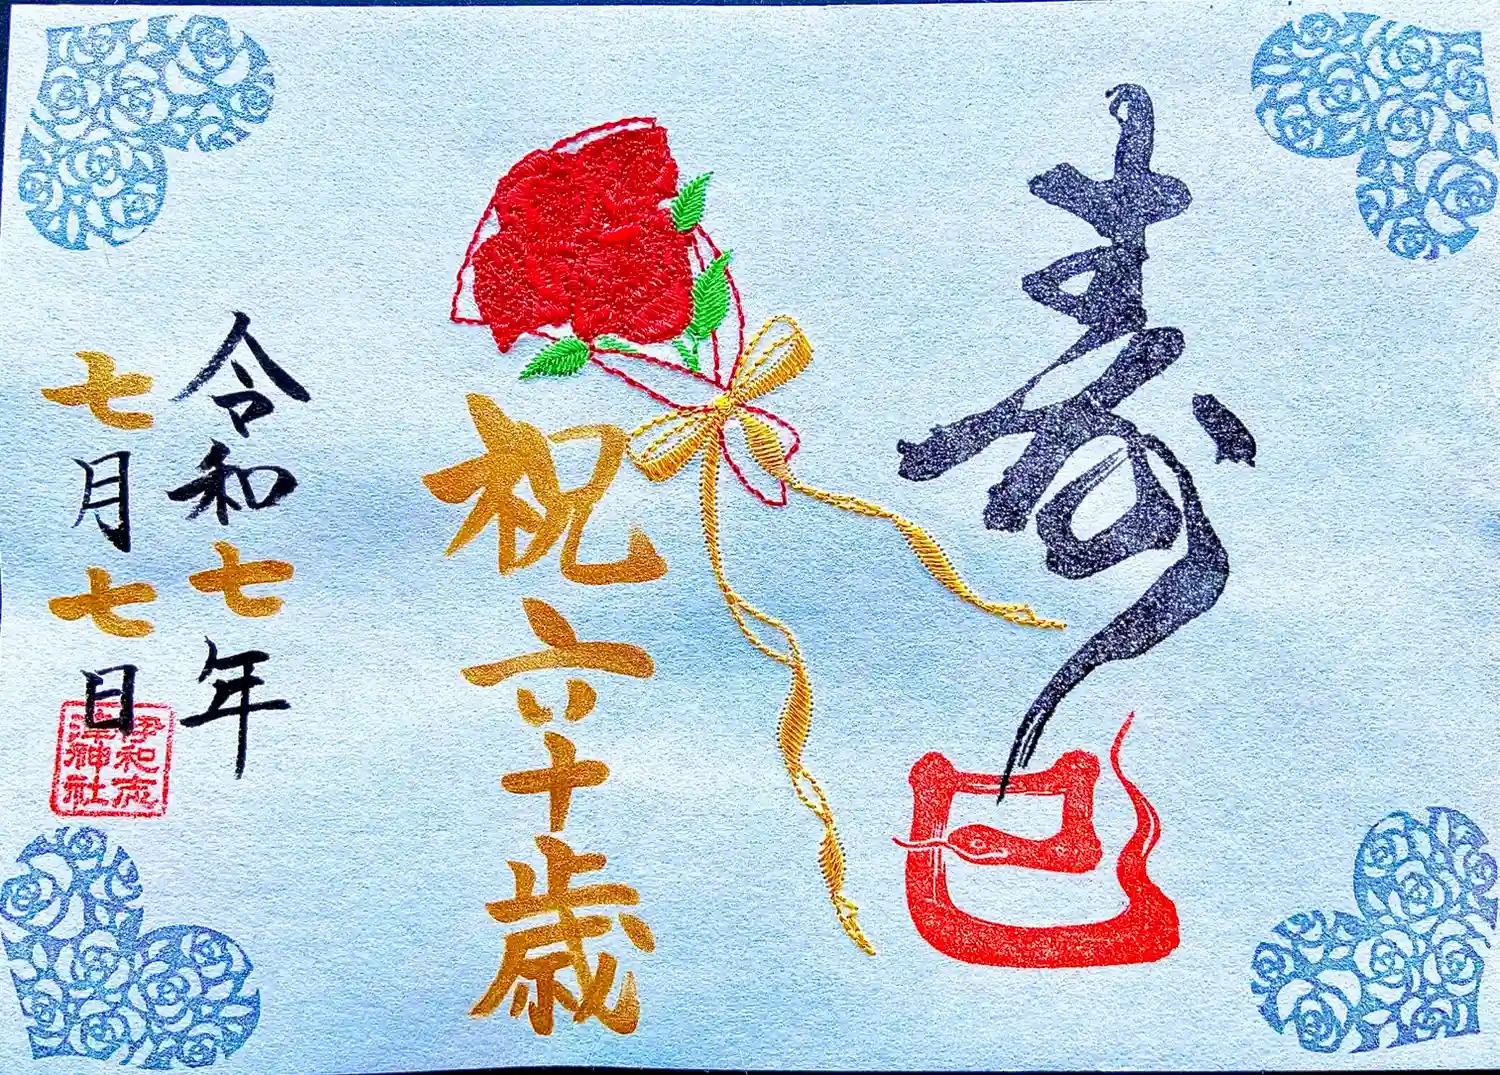 寿
巳
祝六十歳
令和七年
七月七日
伊和志
津神社